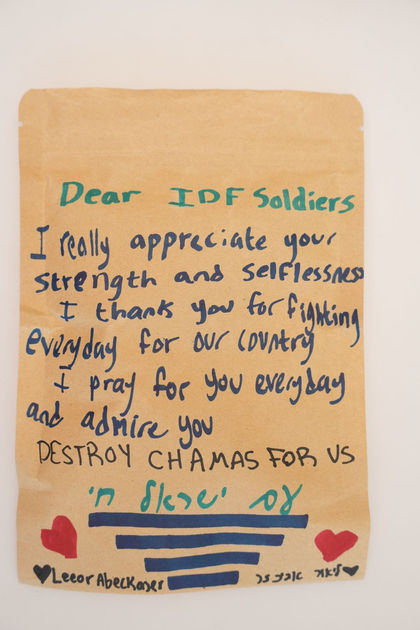 Dear IDF Soldiers
I really appreciate your
strength and selflessness
I thank you for fighting
everyday for our country
I pray for you everyday
and admire you
DESTROY CHAMAS FOR US
עם ישראל חי
Leeor Abeckaser